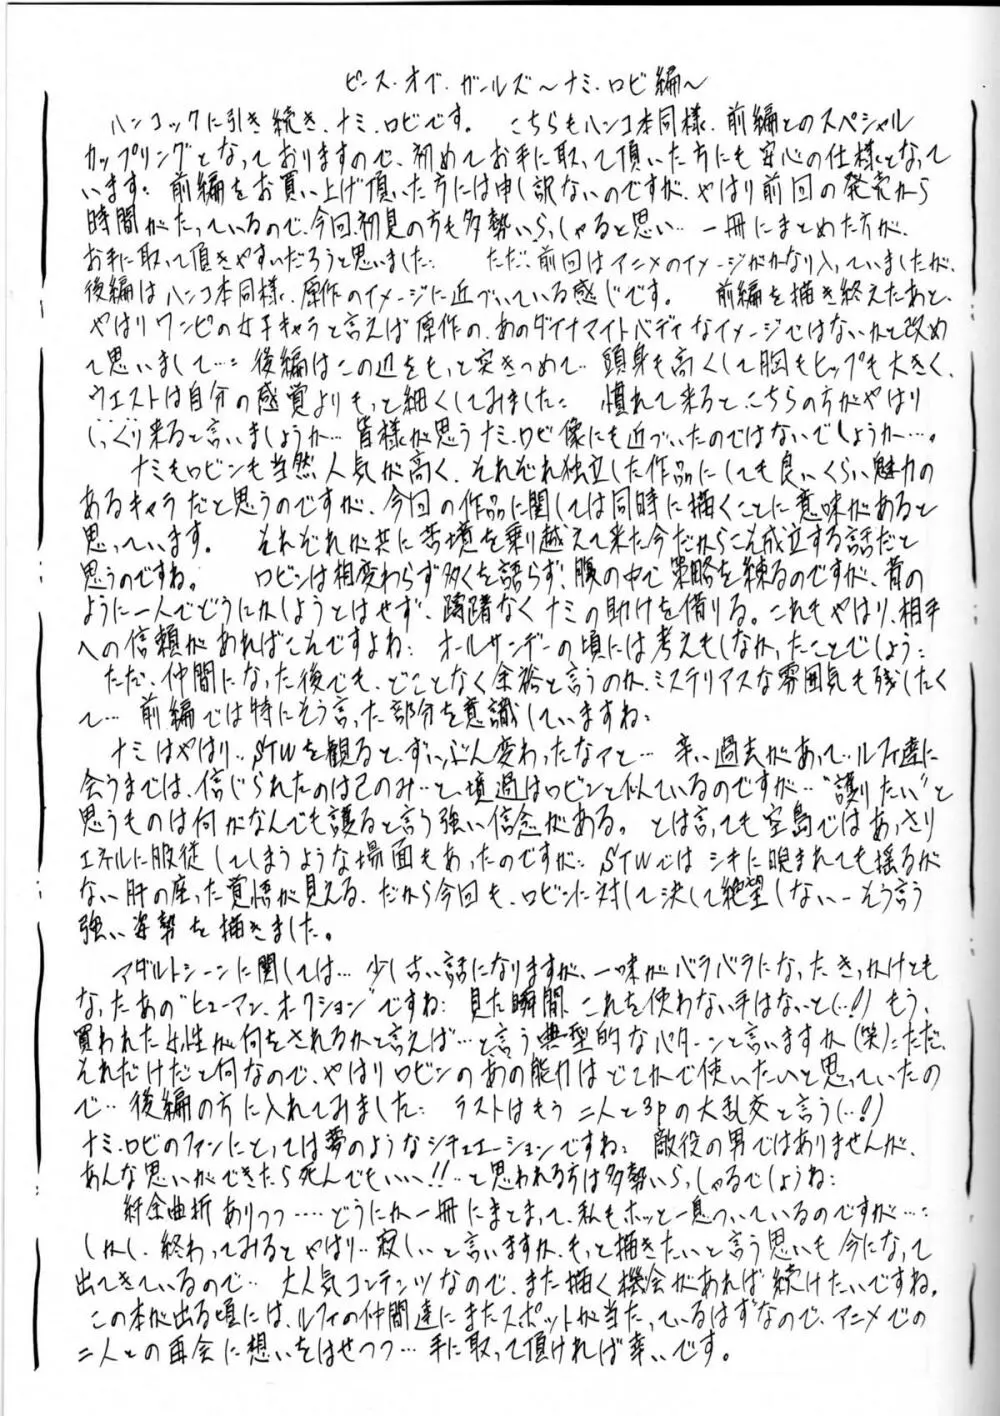 ピース・オブ・ガールズ～ナミ・ロビ編～
ハンコックに引き続き、ナミ・ロビです。 こちらもハンコ本同様、前編とのスペシャル
カップリングとなっておりますので、初めてお手に取って頂いた方にも安心の仕様となって
います: 前編をお買い上げ頂いた方には申し訳ないのですが、やはり前回の発売から
時間がたっているので、今回初見の方も多勢いらっしゃると思い… 一冊にまとめた方が、
お手に取って頂きやすいだろうと思いました: ただ、前回はアニメのイメージがかなり入っていましたが、
後編はハンコ本同様、原作のイメージに近づいている感じです。 前編を描き終えたあと、
やはりワンピの女子キャラと言えば原作の、あのダイナマイトバディなイメージではないかと改め
て思いまして…: 後編はこの辺をもっと突きつめて… 頭身も高くして胸もヒップも大きく、
ウエストは自分の感覚よりもっと細くしてみました: 慣れて来ると、こちらの方がやはり
しっくり来ると言いましょうか… 皆様が思うナミ・ロビ像にも近づいたのではないでしょうか…。
ナミもロビンも当然人気が高く、それぞれ独立した作品にしても良いくらい魅力の
あるキャラだと思うのですが、今回の作品に関しては同時に描くことに意味があると
思っています。 それぞれが共に苦境を乗り越えて来た今だからこそ成立する話だと
思うのですね。 ロビンは相変わらず多くを語らず、腹の中で策略を練るのですが、昔の
ように一人でどうにかしようとはせず、躊躇なくナミの助けを借りる。これもやはり、相手
への信頼があればこそですよね: オールサンデーの頃には考えもしなかったことでしょう:
ただ、仲間になった後でも、どことなく余裕と言うのか、ミステリアスな雰囲気も残したく
て… 前編では特にそう言った部分を意識していますね:
ナミはやはり‥STWを観ると、ずいぶん変わったなァと… 辛い過去があって‥ルフィ達に
会うまでは、信じられたのは己のみ…と、境遇はロビンと似ているのですが…“護りたい”と
思うものは何がなんでも護ると言う強い信念がある。とは言っても空島ではあっさり
エネルに服従してしまうような場面もあったのですが: STWではシキに睨まれても揺るが
ない肝の座った覚悟が見える、だから今回も、ロビンに対して決して絶望しない－そう言う
強い姿勢を描きました。
アダルトシーンに関しては… 少し古い話になりますが、一味がバラバラになった、きっかけとも
なったあの“ヒューマン、オクション”ですね: 見た瞬間、これを使わない手はないと(…!) もう、
買われた女性が何をされるかと言えば…と言う典型的なパターンと言いますか(笑): ただ、
それだけだと何なので、やはりロビンのあの能力はどこかで使いたいと思っていたの
で‥ 後編の方に入れてみました: ラストはもう二人と3pの大乱交と言う(…!)
ナミ・ロビのファンにとっては夢のようなシチュエーションですね: 敵役の男ではありませんが、
あんな思いができたら死んでもいい!!‥と思われる方は多勢いらっしゃるでしょうね:
紆余曲折ありつつ…‥どうにか一冊にまとまって、私もホッと一息ついているのですが…:
しかし、終わってみるとやはり‥寂しいと言いますか、もっと描きたいと言う思いも今になって
出てきているので… 大人気コンテンツなので、また描く機会があれば続けたいですね。
この本が出る頃には、ルフィの仲間達にまたスポットが当たっているはずなので、アニメでの
二人との再会に想いをはせつつ…手に取って頂ければ幸いです。